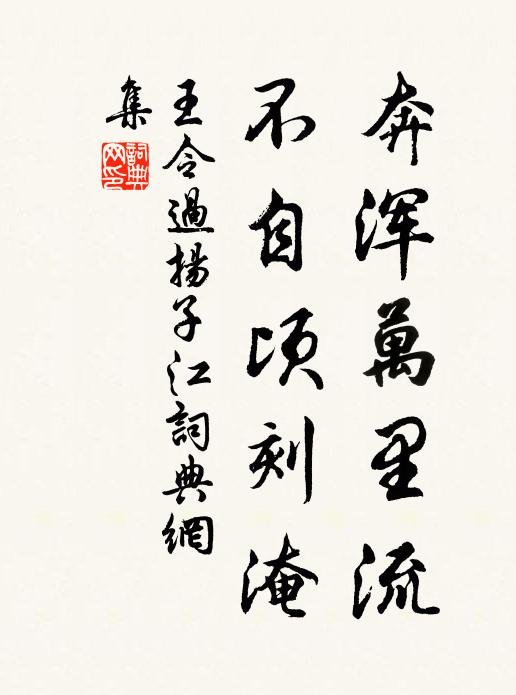 奔渾萬里流
不自頃刻淹
王令過揚子江詞典網
集
詞典网印